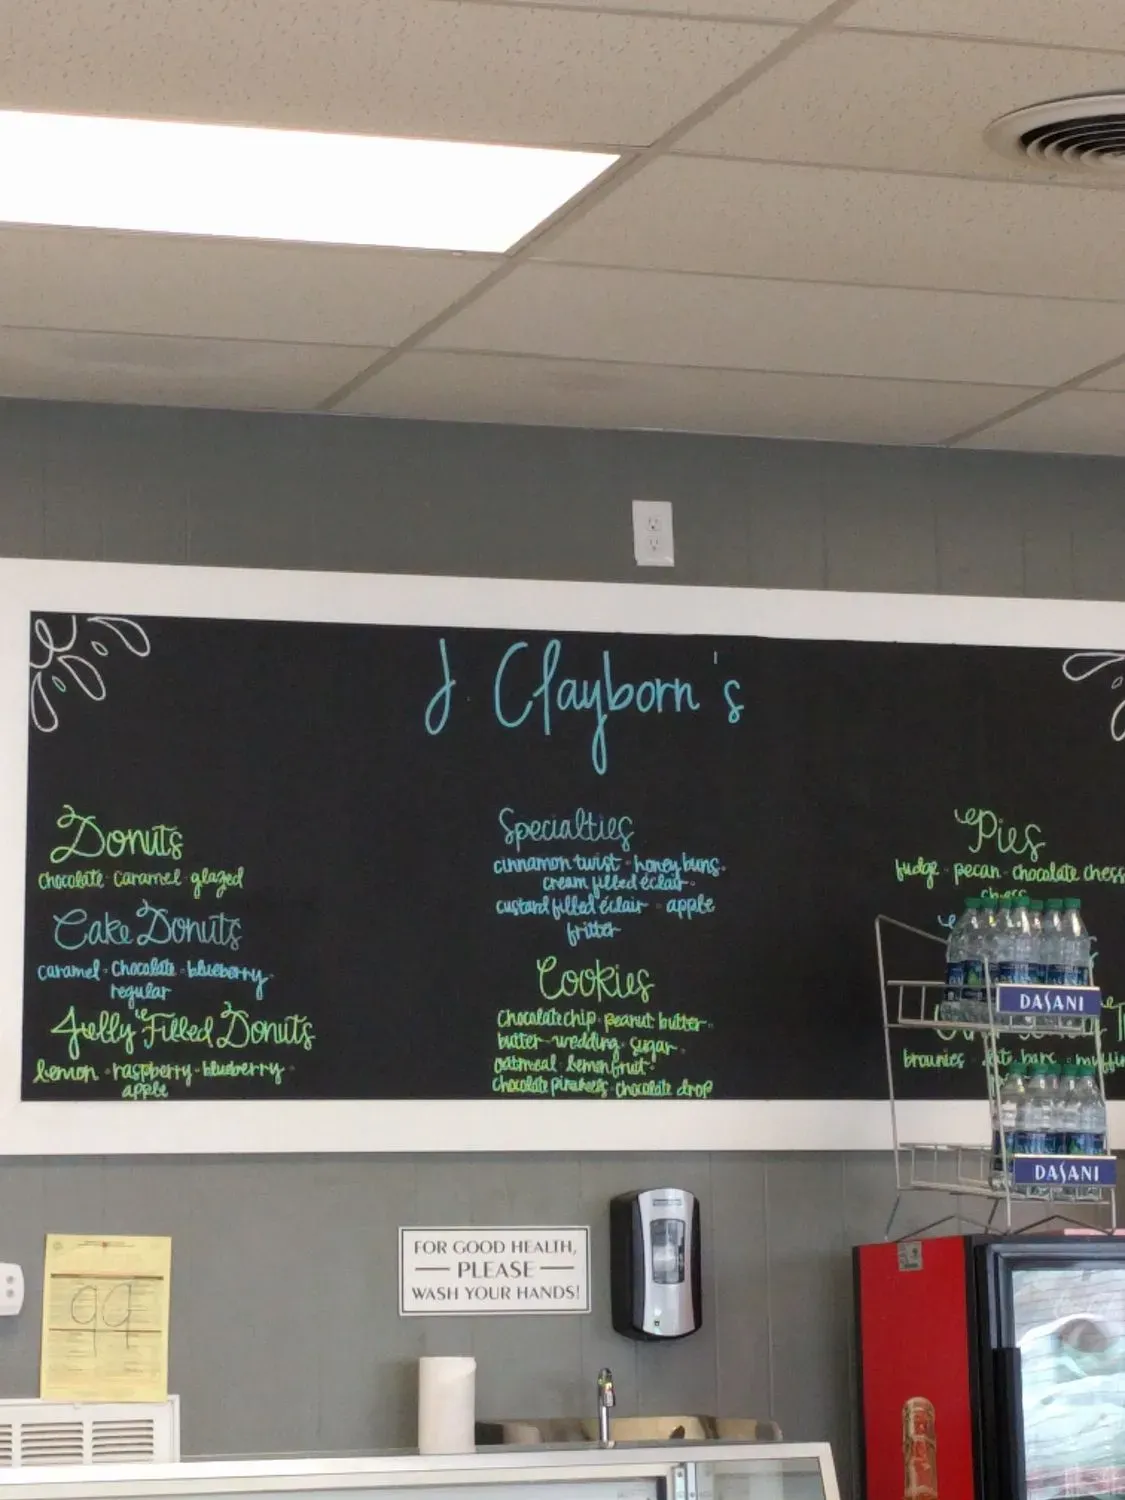 J. Clayborn's
Donuts
chocolate · caramel · glazed
Cake Donuts
caramel · chocolate · blueberry ·
regular
Jelly Filled Donuts
lemon · raspberry · blueberry ·
apple
Specialties
cinnamon twist · honey buns ·
cream filled éclair ·
custard filled éclair · apple
fritter
Cookies
chocolate chip · peanut butter ·
butter · wedding · sugar ·
oatmeal · lemon fruit ·
chocolate pinwheels · chocolate drop
Pies
fudge · pecan · chocolate chess
chess
brownies
DASANI
DASANI
FOR GOOD HEALTH,
PLEASE
WASH YOUR HANDS!
99